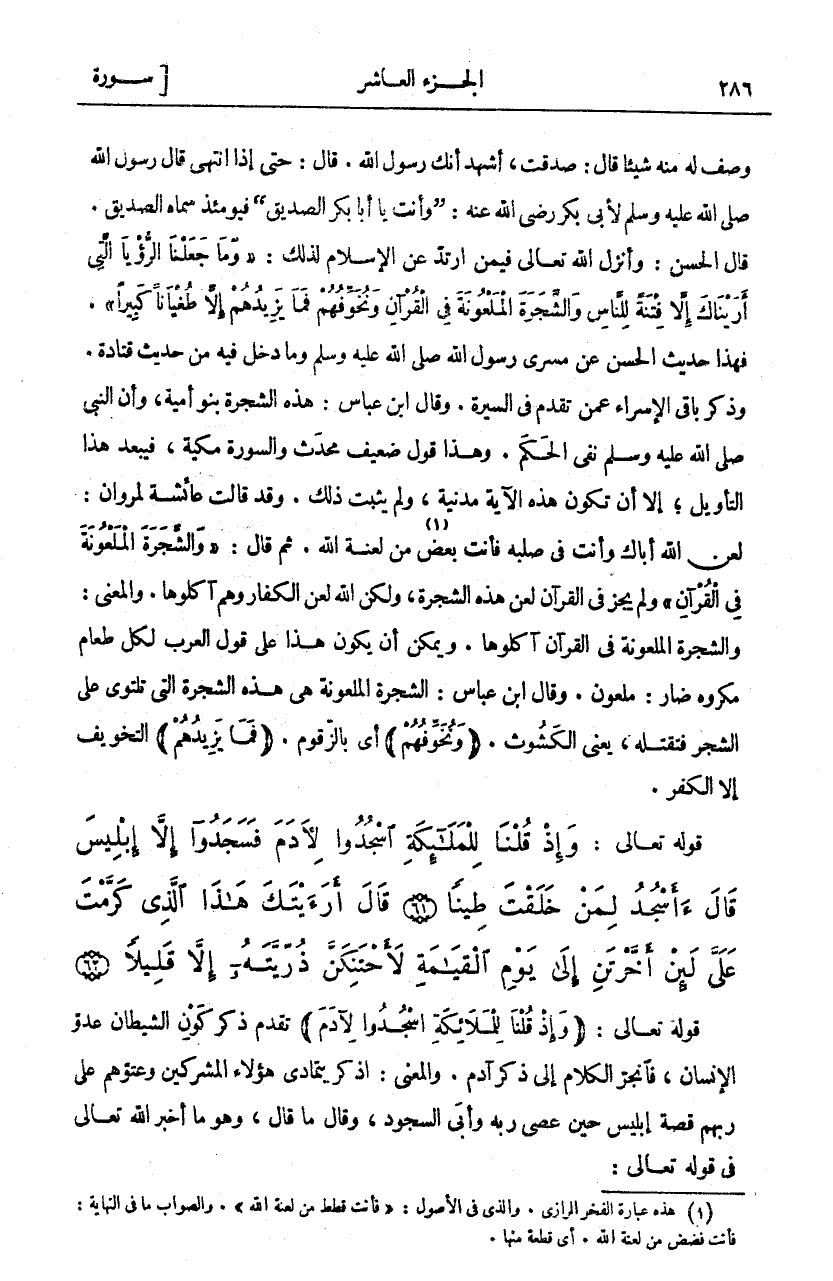 ٢٨٦ الجزء العاشر [ سورة
وصف له منه شيئا قال : صدقت ، أشهد أنك رسول الله . قال : حتى إذا انتهى قال رسول الله
صلى الله عليه وسلم لأبى بكر رضى الله عنه : "وأنت يا أبا بكر الصديق" فيومئذ سماه الصديق .
قال الحسن : وأنزل الله تعالى فيمن ارتد عن الإسلام لذلك : « وَمَا جَعَلْنَا الرُّؤْيَا الَّتِي
أَرَيْنَاكَ إِلَّا فِتْنَةً لِلنَّاسِ وَالشَّجَرَةَ الْمَلْعُونَةَ فِي الْقُرْآنِ وَنُخَوِّفُهُمْ فَمَا يَزِيدُهُمْ إِلَّا طُغْيَاناً كَبِيراً » .
فهذا حديث الحسن عن مسرى رسول الله صلى الله عليه وسلم وما دخل فيه من حديث قتادة .
وذكر باقى الإسراء عمن تقدم فى السيرة . وقال ابن عباس : هذه الشجرة بنو أمية ، وأن النبى
صلى الله عليه وسلم نفى الحَكَم . وهذا قول ضعيف محدَث والسورة مكية ، فيبعد هذا
التأويل ؛ إلا أن تكون هذه الآية مدنية ، ولم يثبت ذلك . وقد قالت عائشة لمروان :
لعن الله أباك وأنت فى صلبه فأنت بعض (١) من لعنة الله . ثم قال : « وَالشَّجَرَةَ الْمَلْعُونَةَ
فِي الْقُرْآنِ » ولم يجز فى القرآن لعن هذه الشجرة ، ولكن الله لعن الكفار وهم آكلوها . والمعنى :
والشجرة الملعونة فى القرآن آكلوها . ويمكن أن يكون هذا على قول العرب لكل طعام
مكروه ضار : ملعون . وقال ابن عباس : الشجرة الملعونة هى هذه الشجرة التى تلتوى على
الشجر فتقتله ، يعنى الكَشُوث . ﴿ وَنُخَوِّفُهُمْ ﴾ أى بالزّقوم . ﴿ فَمَا يَزِيدُهُمْ ﴾ التخويف
إلا الكفر .
قوله تعالى : وَإِذْ قُلْنَا لِلْمَلَٰٓئِكَةِ ٱسْجُدُوا لِأَدَمَ فَسَجَدُوٓا إِلَّآ إِبْلِيسَ
قَالَ ءَأَسْجُدُ لِمَنْ خَلَقْتَ طِينًا ٦١ قَالَ أَرَءَيْتَكَ هَٰذَا ٱلَّذِى كَرَّمْتَ
عَلَىَّ لَئِنْ أَخَّرْتَنِ إِلَىٰ يَوْمِ ٱلْقِيَٰمَةِ لَأَحْتَنِكَنَّ ذُرِّيَّتَهُۥٓ إِلَّا قَلِيلًا ٦٢
قوله تعالى : ﴿ وَإِذْ قُلْنَا لِلْمَلَائِكَةِ اسْجُدُوا لِآدَمَ ﴾ تقدم ذكر كَوْنِ الشيطان عدوّ
الإنسان ، فآنجرّ الكلام إلى ذكر آدم . والمعنى : اذكر بتمادى هؤلاء المشركين وعتوّهم على
ربهم قصة إبليس حين عصى ربه وأبى السجود ، وقال ما قال ، وهو ما أخبر الله تعالى
فى قوله تعالى :
(١) هذه عبارة الفخر الرازى . والذى فى الأصول : « فأنت قطط من لعنة الله » . والصواب ما فى النهاية :
فأنت فضض من لعنة الله . أى قطعة منها .